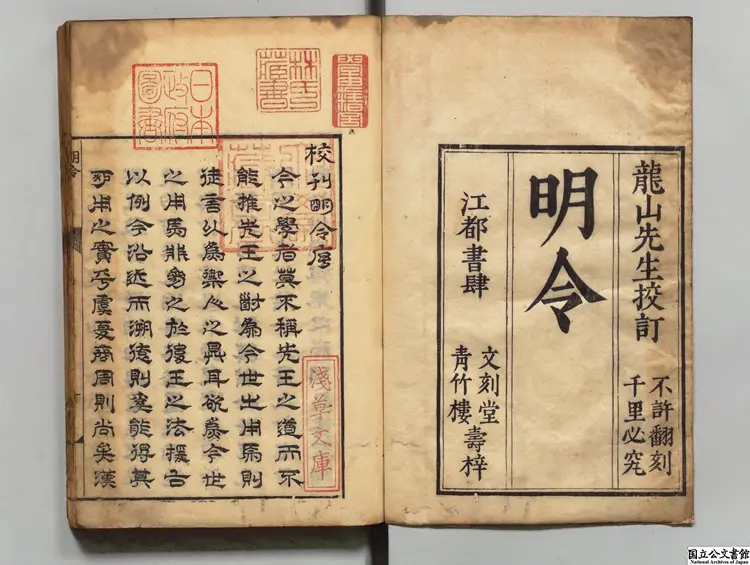 龍山先生挍訂
不許翻刻
千里必究
明令
江都書肆
文刻堂
青竹樓
壽梓
林氏藏書
日本政府圖書
校刊明令序
今之學者莫不稱先王之道而不
能推先王之爲今世之用焉則
徒言以爲人之具耳欲爲今世
之用焉之於後王之法援古
以例今沿近而溯遠則能得其
所用之實乎虞夏商周則尚矣漢
淺草文庫
明令
国立公文書館
National Archives of Japan